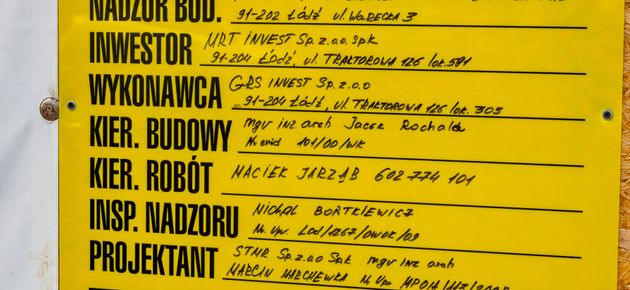 NADZÓR BUD.
91-202 ŁÓDŹ ul. WARECKA 3
INWESTOR MRT INVEST Sp. z.o.o. Spk
91-204 ŁÓDŹ, ul. TRAKTOROWA 126 lok. 591
WYKONAWCA GRS INVEST Sp. z.o.o
91-204 ŁÓDŹ, ul. TRAKTOROWA 126 lok. 303
KIER. BUDOWY mgr inż. arch Jacek
101/00/WŁ
KIER. ROBÓT MACIEK JARZĄB 602 774 101
INSP. NADZORU MICHAŁ BORTKIEWICZ
Nr. Upr. Lod/1267/OWOK/09
PROJEKTANT STMR Sp. z.o.o Spk mgr inż arch
MARCIN MARCHEWKA Nr. Upr.